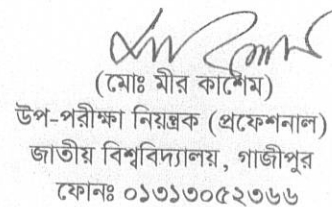 (মোঃ মীর কাশেম)
উপ-পরীক্ষা নিয়ন্ত্রক (প্রফেশনাল)
জাতীয় বিশ্ববিদ্যালয়, গাজীপুর
ফোনঃ ০১৭১৩০৫২৩৬৬